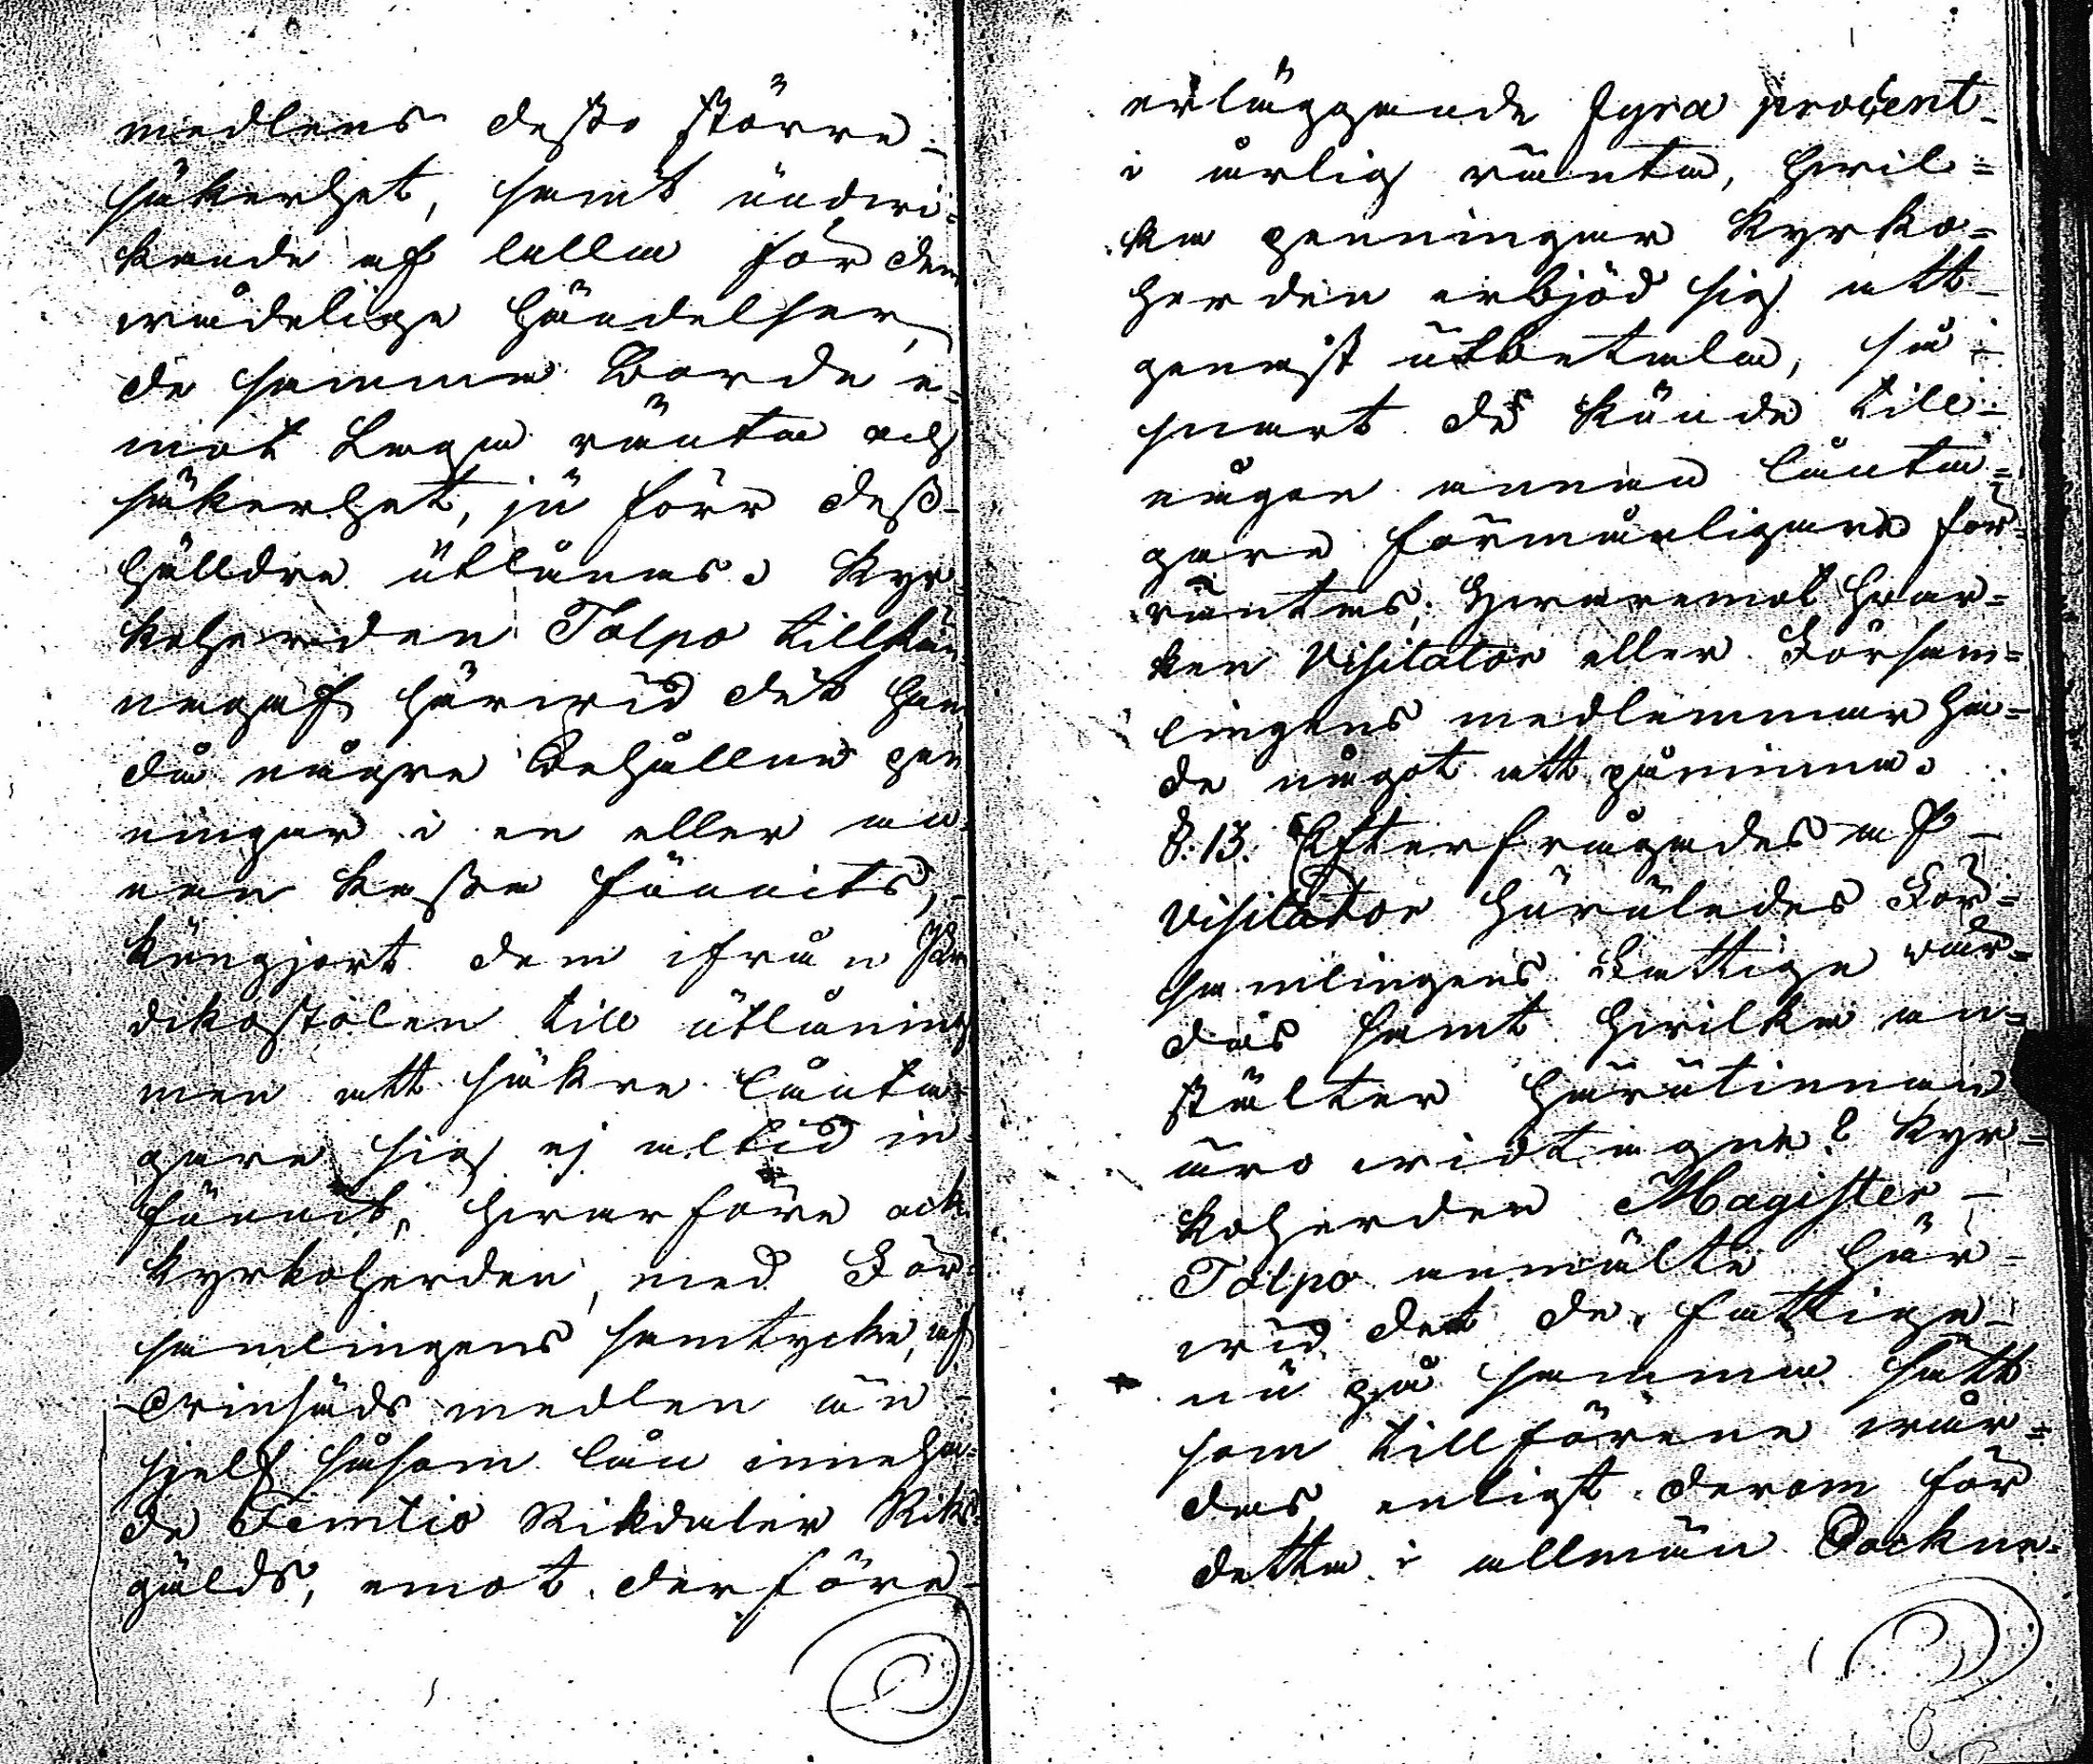 medlens desto större
säkerhet, samt undwi=
kande af allla för dem
wådelige händelser,
de samma borde e=
mot Laga ränta och
säkerhet, ju förr dess
hälldre utlånas. Kyr=
koherden Tolpo tillkän=
nagaf härwid det han
då någre behållne pen
ningar i en eller an=
nan kassa funnits,
kungjort dem ifrån Pre
dikostolen till utlåning
men att säkre lånta=
gare sig ej altid in=
funnit, hwarföre ock
kyrkoherden, med För=
samlingens samtycke, af
Crinsäds medlen nu
sjelf såsom lån inneha=
de Femtio Riksdaler Riks
gälds, emot derföre
erläggande fyra procent
i årlig ränta, hwil=
ka penningar Kyrko=
herden erbjöd sig att
genast utbetala, så
snart de kunde till
någon annan lånta=
gare förmånligare för=
räntas; Hwaremot hwar=
ken Visitator eller Försam=
lingens medlemmar ha=
de något att påminna.
§. 13. Efterfrågades af
Visitator huruledes För=
samlingens Fattige wår=
das samt hwilka an=
stalter härutinnan
äro widtagne? Kyr=
koherden Magister
Tolpo anmälte här=
wid det de fattige
nu på samma sätt
som tillförene wår=
das, enligt derom för
detta i allmän Sockne=